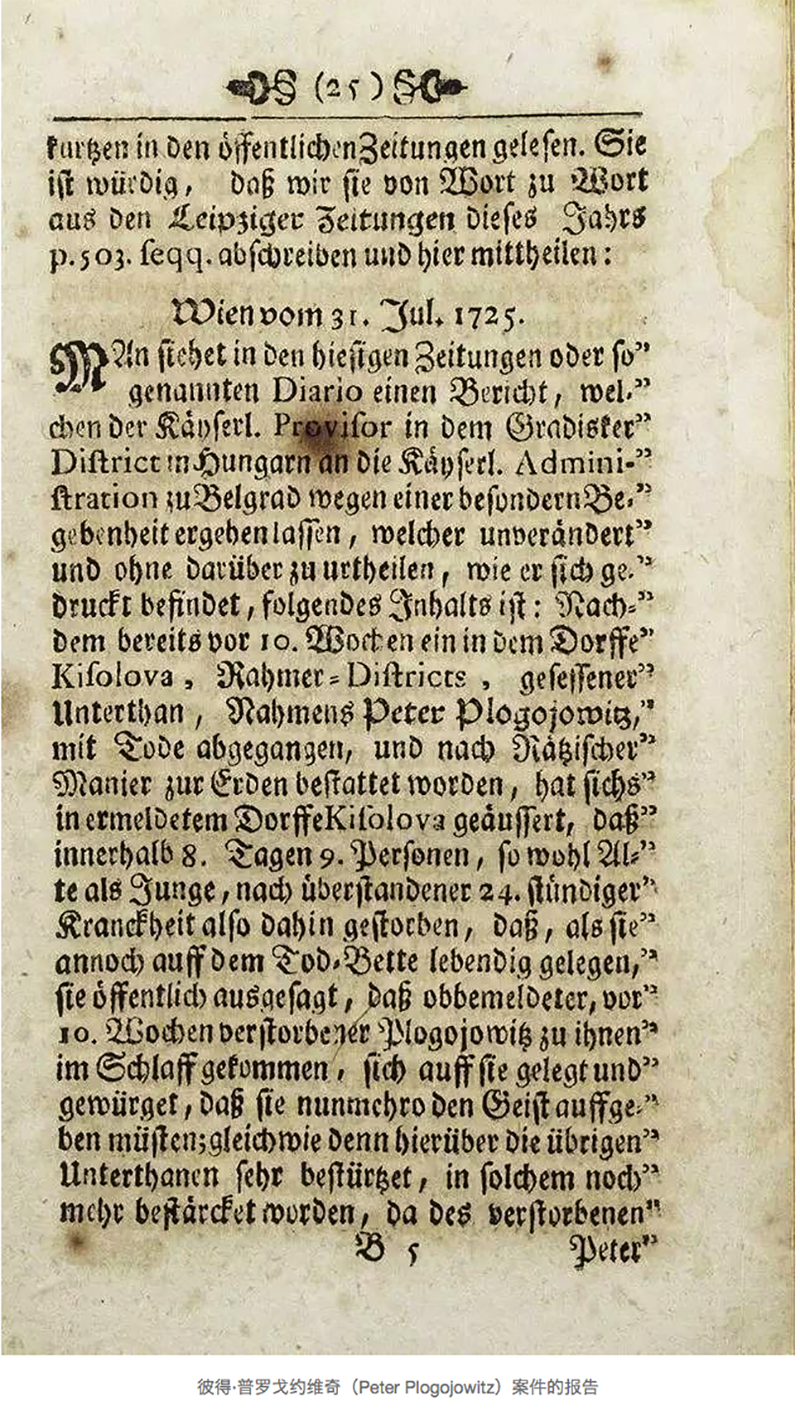 § (25) §
kurtzen in den öffentlichen Zeitungen gelesen. Sie
ist würdig, daß wir sie von Wort zu Wort
aus den Leipziger Zeitungen dieses Jahrs
p. 503. seqq. abschreiben und hier mittheilen:
Wien vom 31. Jul. 1725.
MAn siehet in den hiesigen Zeitungen oder so”
genannten Diario einen Bericht, wel-”
chen der Käyserl. Provisor in dem Gradisker”
District in Hungarn an die Käyserl. Admini-”
stration zu Belgrad wegen einer besondern Be-”
gebenheit ergehen lassen, welcher unverändert”
und ohne darüber zu urtheilen, wie er sich ge-”
druckt befindet, folgendes Inhalts ist: Nach-”
dem bereits vor 10. Wochen ein in dem Dorffe”
Kisolova, Rahmer-Districts, gesessener”
Unterthan, Nahmens Peter Plogojowitz,”
mit Tode abgegangen, und nach Rätzischer”
Manier zur Erden bestattet worden, hat sichs”
in ermeldetem Dorffe Kisolova geäussert, daß”
innerhalb 8. Tagen 9. Personen, so wohl Al-”
te als Junge, nach überstandener 24. stündiger”
Kranckheit also dahin gestorben, daß, als sie”
annoch auff dem Tod-Bette lebendig gelegen,”
sie öffentlich ausgesagt, daß obbemeldeter, vor”
10. Wochen verstorbener Plogojowitz zu ihnen”
im Schlaff gekommen, sich auff sie gelegt und”
gewürget, daß sie nunmehro den Geist auffge-”
ben müsten; gleichwie denn hierüber die übrigen”
Unterthanen sehr bestürtzet, in solchem noch”
mehr bestärcket worden, da des verstorbenen”
B 5 Peter”
彼得·普罗戈约维奇（Peter Plogojowitz）案件的报告